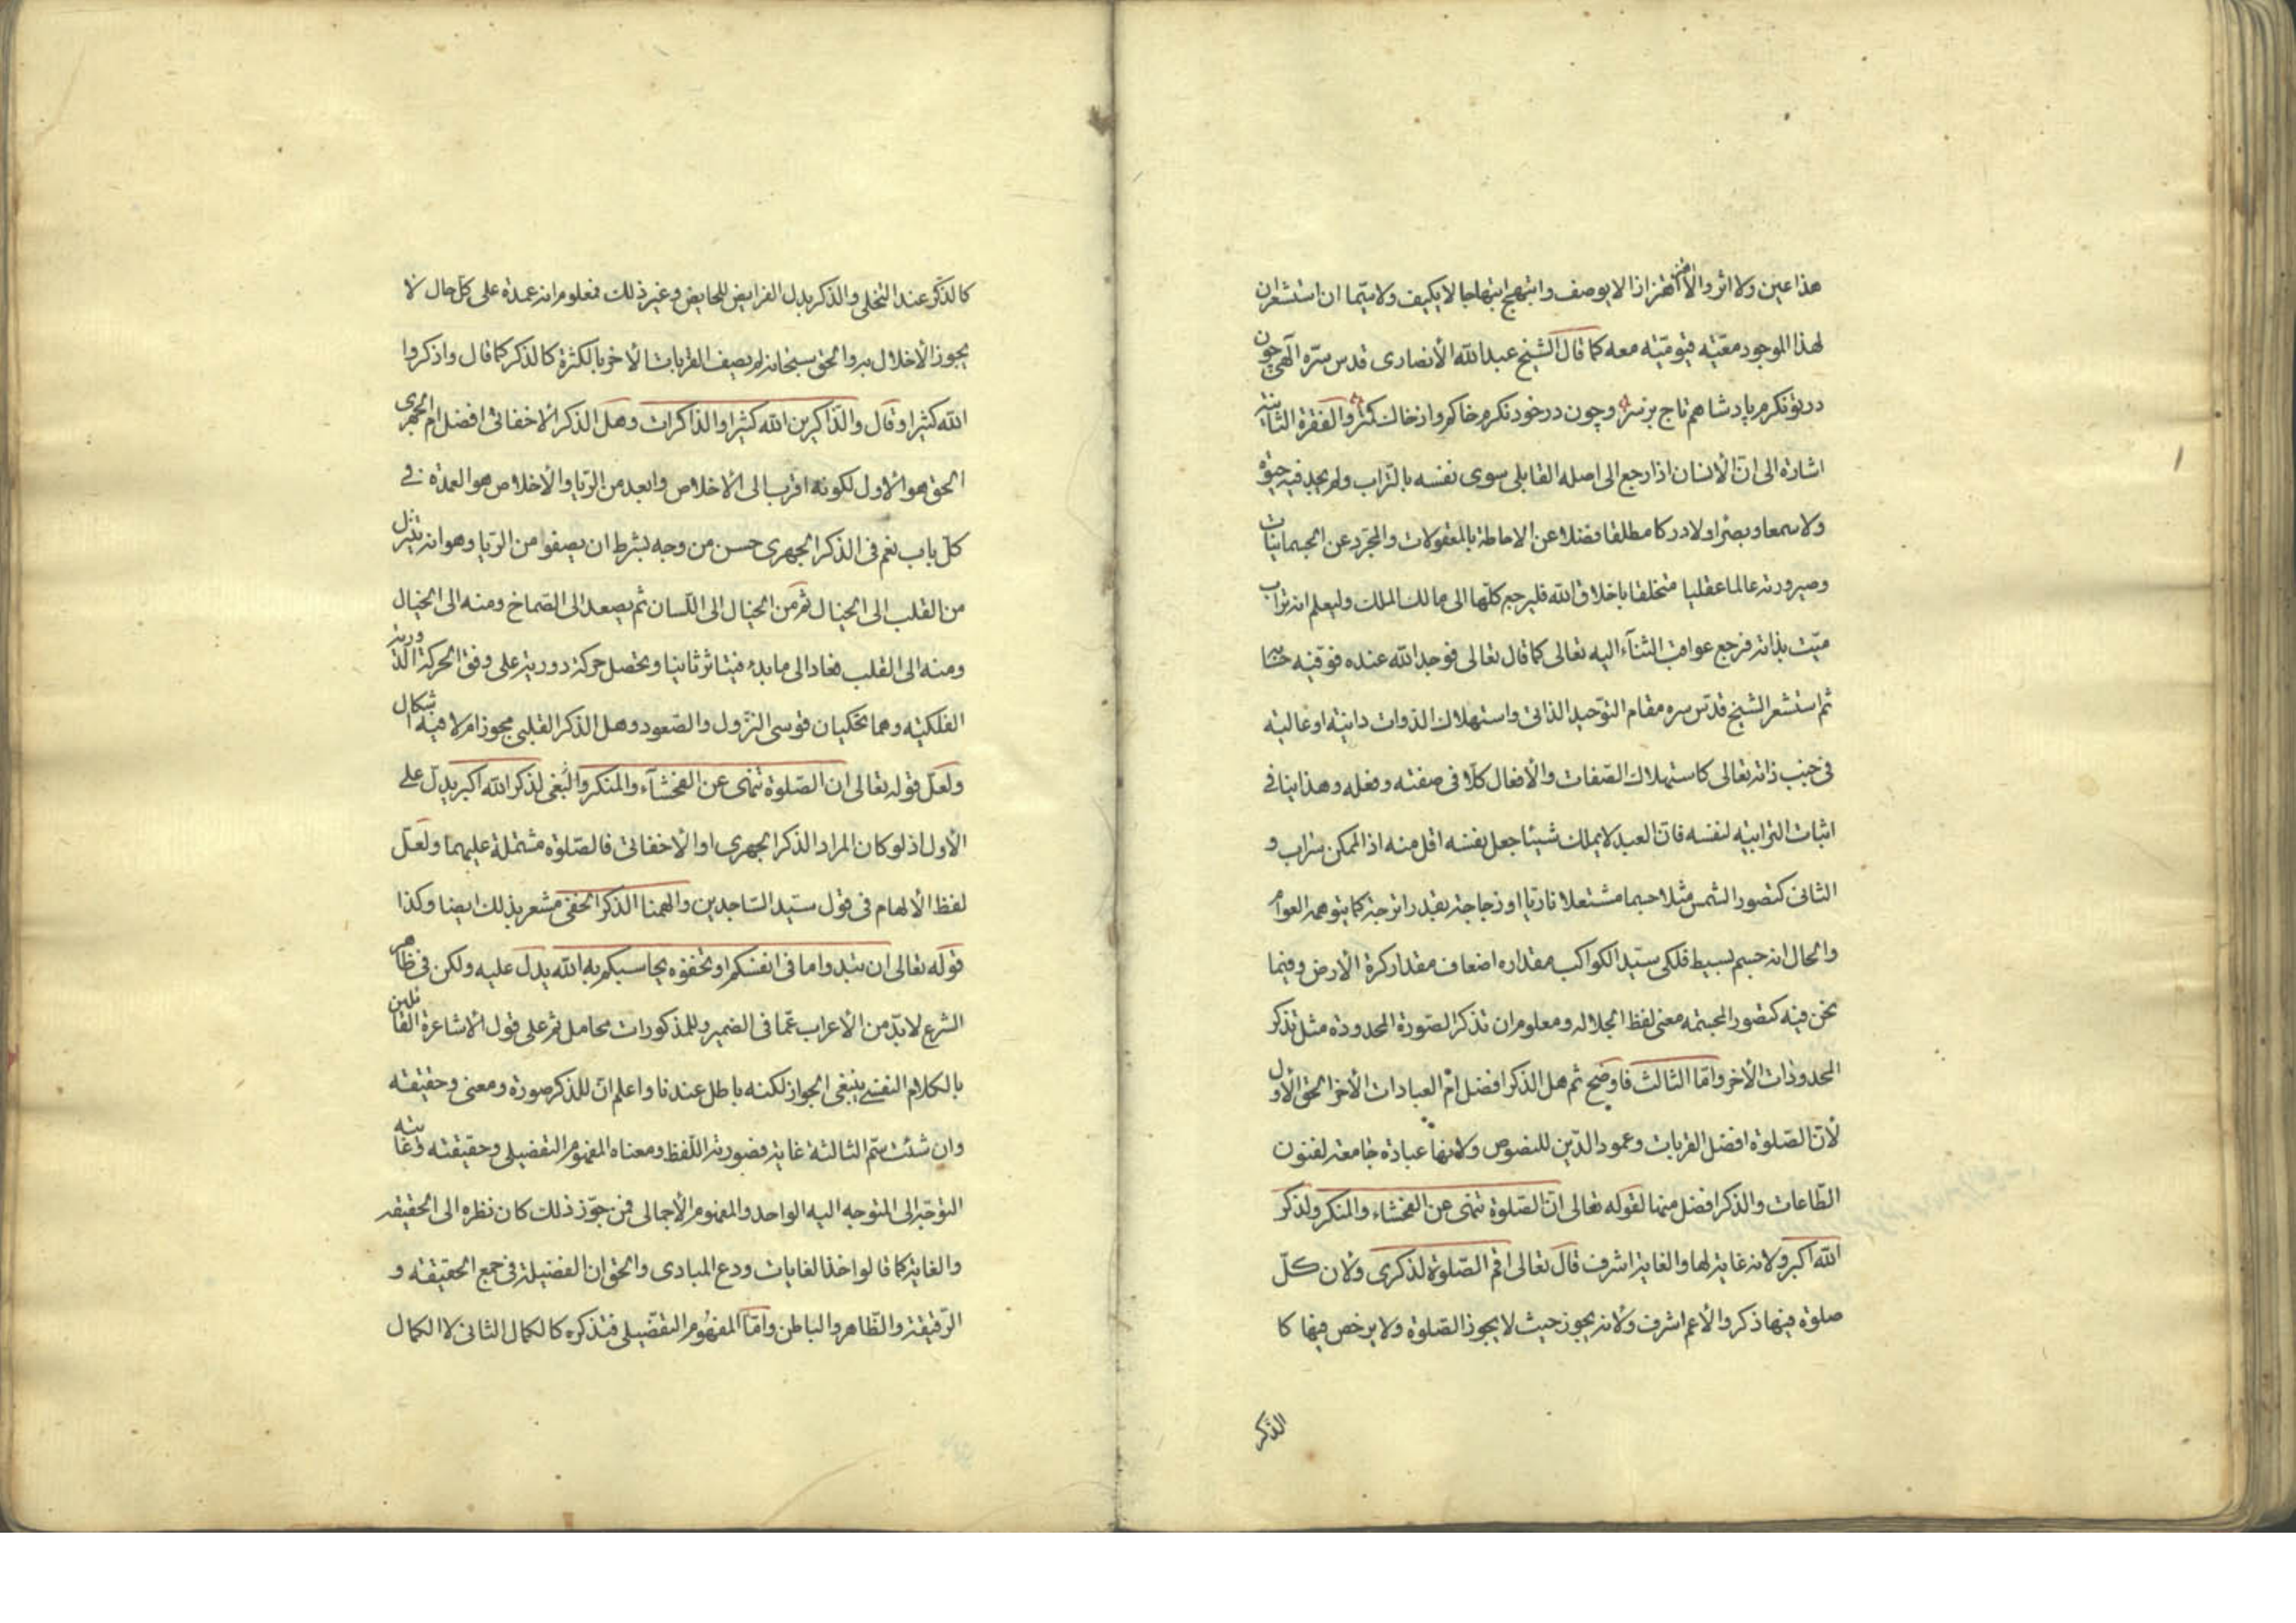 هذا عين ولا اثر والا لاهتز اهتزازا لا يوصف وابتهج ابتهاجا لا يكيف ولا سيما ان استشعر ان
لهذا الموجود معيّته قيّوميّته معه كما قال الشيخ عبد الله الأنصارى قدس سرّه آلهى چون
در تو نكرم پادشاهم تاج بر سر وچون در خود نكرم خاكم واز خاك كمتر والفقرة الثانية
اشارة الى انّ الأنسان اذا رجع الى اصله القابلى سوى نفسه بالتراب ولم يجد فيه حيوة
ولا سمعا وبصرا ولا دركا مطلقا فضلا عن الاحاطة بالمعقولات والتجرّد عن الجسمانيات
وصيرورته عالما عقليا متخلقا باخلاق الله فليرجع كلّها الى مالك الملك وليعلم انه تراب
ميّت بذاته فرجع عواقب الثنآء اليه تعالى كما قال تعالى فوجد الله عنده فوفّيه حسابه
ثم استشعر الشيخ قدّس سره مقام التوحيد الذاتى واستهلاك الذوات دانية او عالية
فى جنب ذاته تعالى كاستهلاك الصّفات والأفعال كلّا فى صفته وفعله وهذا ينافى
اثبات الترابيّة لنفسه فانّ العبد لا يملك شيئا جعل نفسه اقل منه اذ الممكن سراب و
الثانى كتصور الشمس مثلا جسما مشتعلا ناريا او زجاجة بقدر اترجة كما يتوهمه العوام
والحال انه جسم بسيط فلكى سيّد الكواكب مقداره اضعاف مقدار كرة الأرض وفيما
نحن فيه كتصور المجسّمه معنى لفظ الجلاله ومعلوم ان تذكر الصّورة المحدودة مثل تذكر
المحدودات الأخر وامّا الثالث فاوضح ثم هل الذكر افضل ام العبادات الأخر الحق الأول
لأنّ الصّلوة افضل القربات وعمود الدّين للنصوص ولأنها عبادة جامعة لفنون
الطّاعات والذكر افضل منها لقوله تعالى انّ الصّلوة تنهى عن الفحشاء والمنكر ولذكر
الله اكبر ولانه غاية لها والغاية اشرف قال تعالى اقم الصّلوة لذكرى ولان كلّ
صلوة فيها ذكر والأعم اشرف ولأنه يجوز حيث لا يجوز الصّلوة ولا يرخص فيها كا
الذكر
كالذكر عند التخلى والذكر بدل الفرايض للحايض وغير ذلك فمعلوم انه عمدة على كلّ حال لا
يجوز الأخلال به والحق سبحانه لم يصف القربات الأخر بالكثرة كالذكر كما قال واذكروا
الله كثيرا وقال والذّاكرين الله كثيرا والذاكرات وهل الذكر الاخفاتى افضل ام الجهرى
الحق هو الأول لكونه اقرب الى الأخلاص وابعد من الرّيا والأخلاص هو العمدة فى
كلّ باب نعم فى الذكر الجهرى حسن من وجه بشرط ان يصفو من الرّيا وهو انه يتنزل
من القلب الى الخيال ثم من الخيال الى اللّسان ثم يصعد الى الصّماخ ومنه الى الخيال
ومنه الى القلب فعاد الى ما بدء فيتاثر ثانيا ويحصل حركة دورية على وفق الحركة الدورية
الفلكيّه وهما تحكيان قوسى النزول والصّعود وهل الذكر القلبى مجوز ام لا فيه اشكال
ولعلّ قوله تعالى ان الصّلوة تنهى عن الفحشآء والمنكر والبغى لذكر الله اكبر يدلّ على
الأول اذ لو كان المراد الذكر الجهرى او الأخفاتى فالصّلوة مشتملة عليهما ولعلّ
لفظ الألهام فى قول سيّد السّاجدين والهمنا الذكر الخفى مشعر بذلك ايضا وكذا
قوله تعالى ان تبدوا ما فى انفسكم او تخفوه يحاسبكم به الله يدل عليه ولكن فى ظاهر
الشرع لا بدّ من الأعراب عمّا فى الضمير وللمذكورات محامل ثم على قول الأشاعرة القائلين
بالكلام النفسى ينبغى الجواز لكنه باطل عندنا واعلم انّ للذكر صورة ومعنى وحقيقته
وان شئت سمّ الثالثة غاية فصورته اللّفظ ومعناه المفهوم التفصيلى وحقيقته وغايته
التوجّه الى المتوجه اليه الواحد والمفهوم الأجمالى فمن جوّز ذلك كان نظره الى الحقيقه
والغاية كما قالوا خذ الغايات ودع المبادى والحق ان الفضيلة فى جمع الحقيقه و
الرّقيقة والظّاهر والباطن وامّا المفهوم التفصّيلى فتذكره كالكمال الثانى لا الكمال